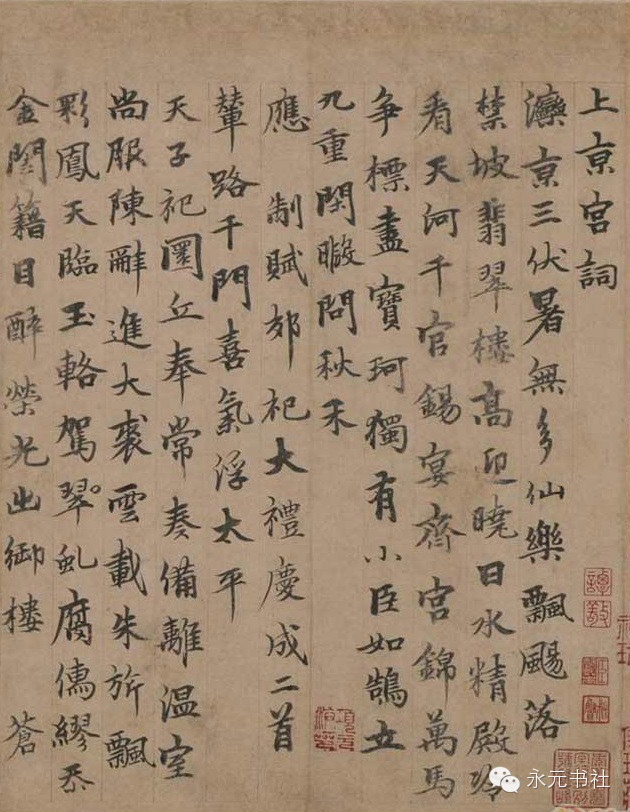 上京宮詞
灤京三伏暑無多仙樂飄颺落
禁坡翡翠樓高迎曉日水精殿冷
看天河千官錫宴齊宮錦萬馬
爭標盡寶珂獨有小臣如鵠立
九重閑暇問秋禾
應 制賦郊祀大禮慶成二首
輦路千門喜氣浮太平
天子祀圜丘奉常奏備離溫室
尚服陳辭進大裘雲載朱旂飄
彩鳳天臨玉輅駕翠虬腐儒繆忝
金閨籍日醉榮光出御樓 蒼
永元书社